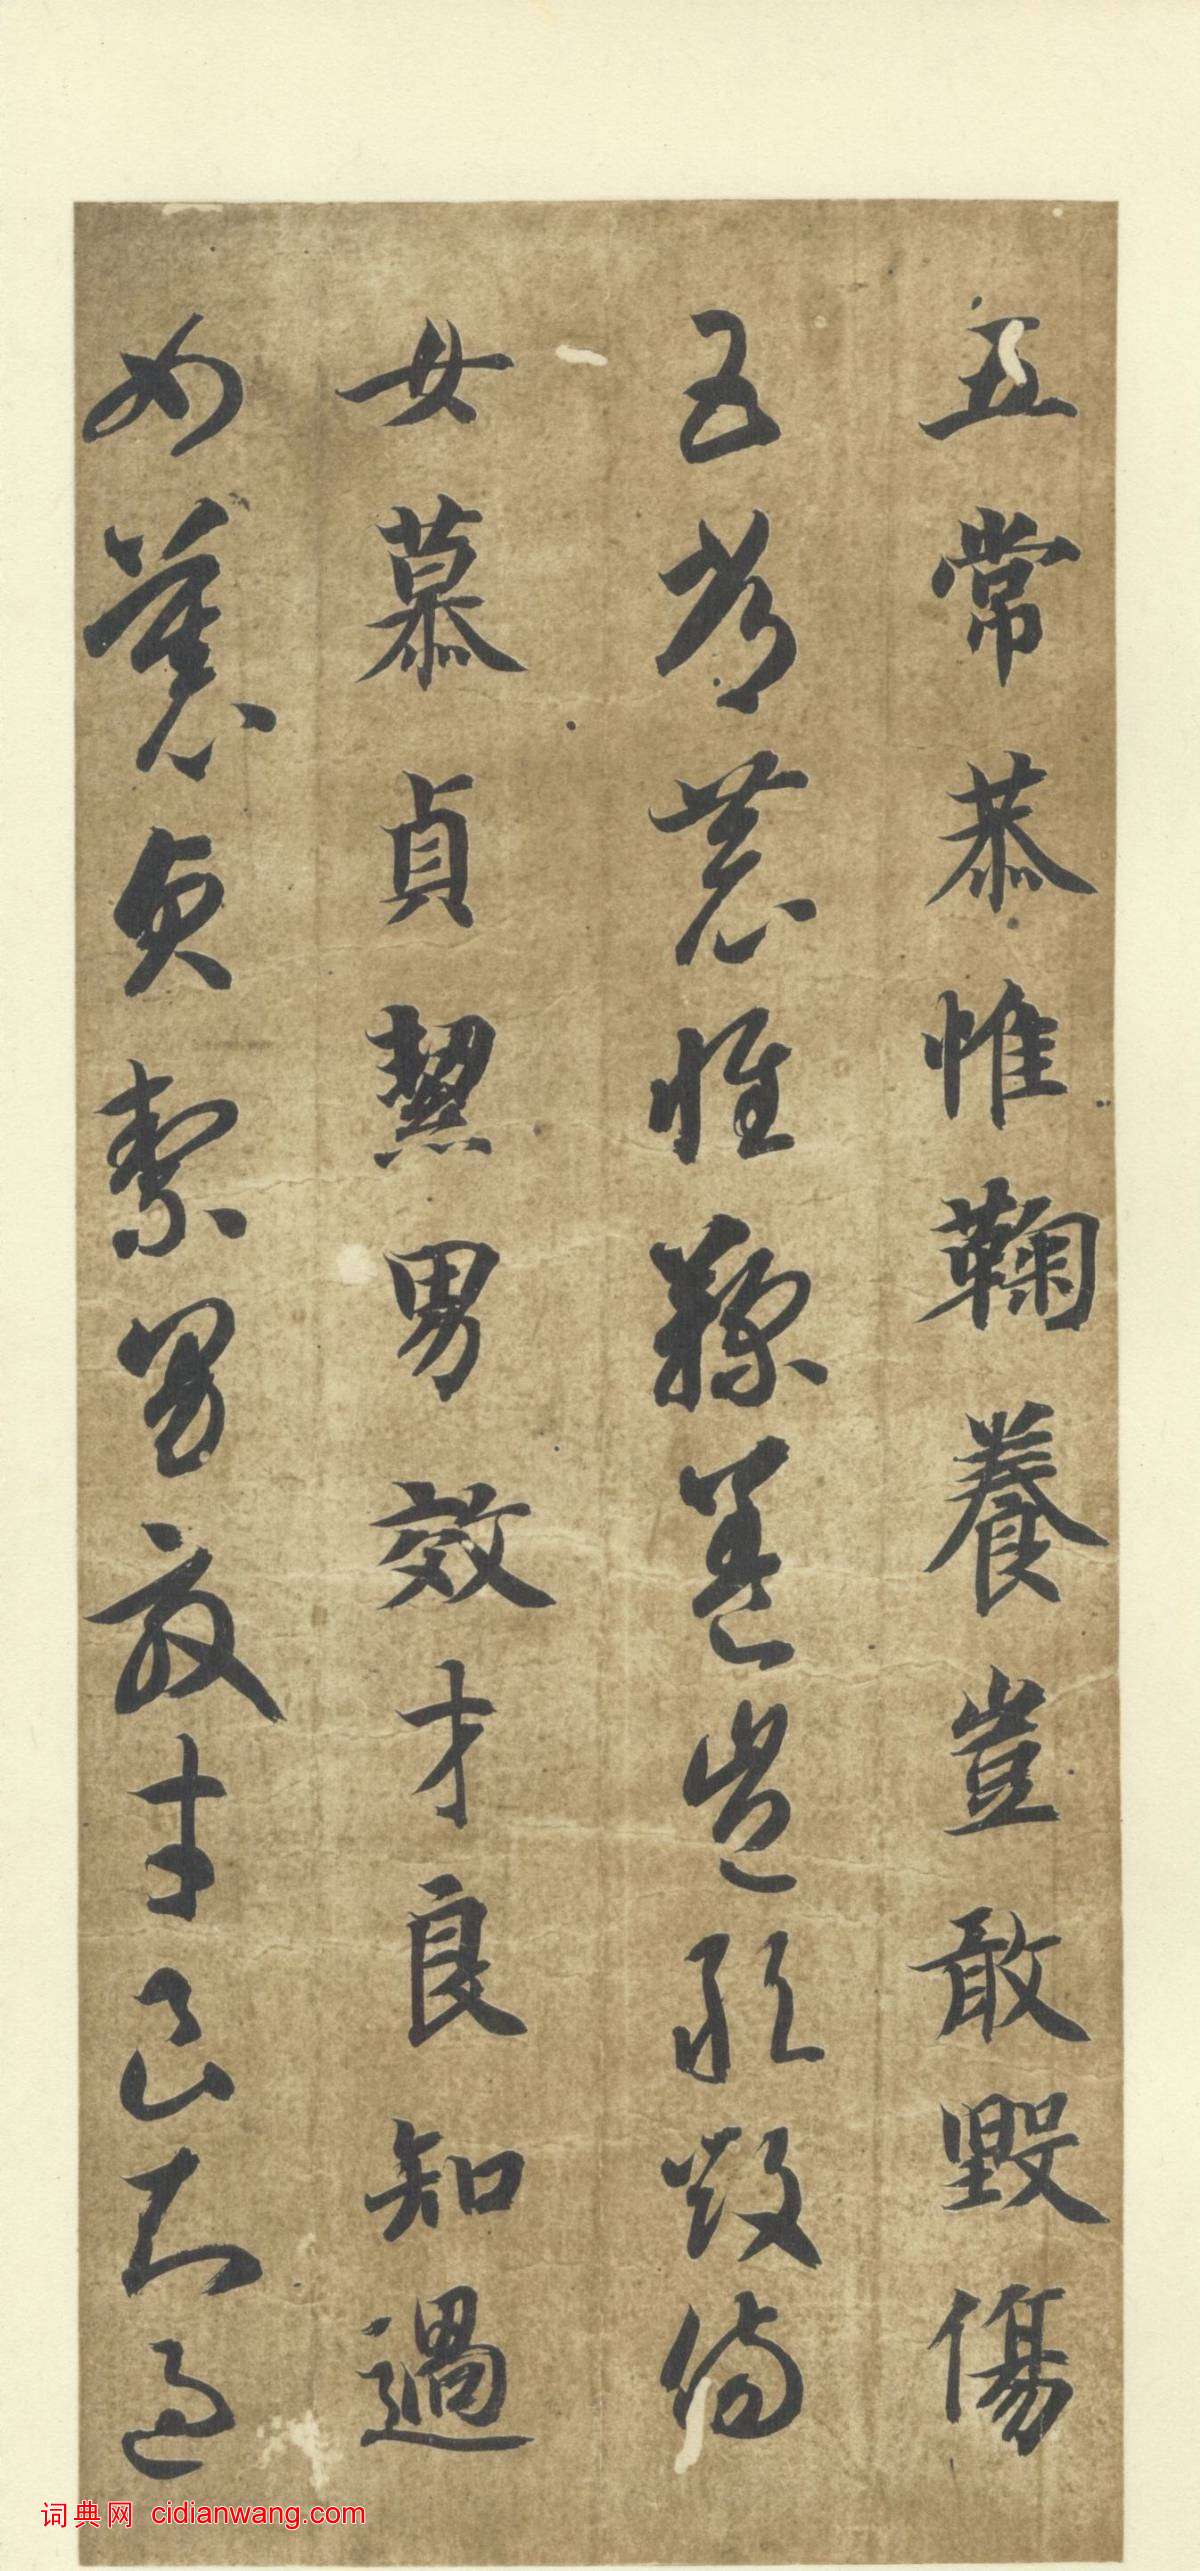 五常恭惟鞠養豈敢毀傷
五常恭惟鞠養豈敢毀傷
女慕貞絜男效才良知過
女慕貞絜男效才良知過
词典网 cidianwang.com